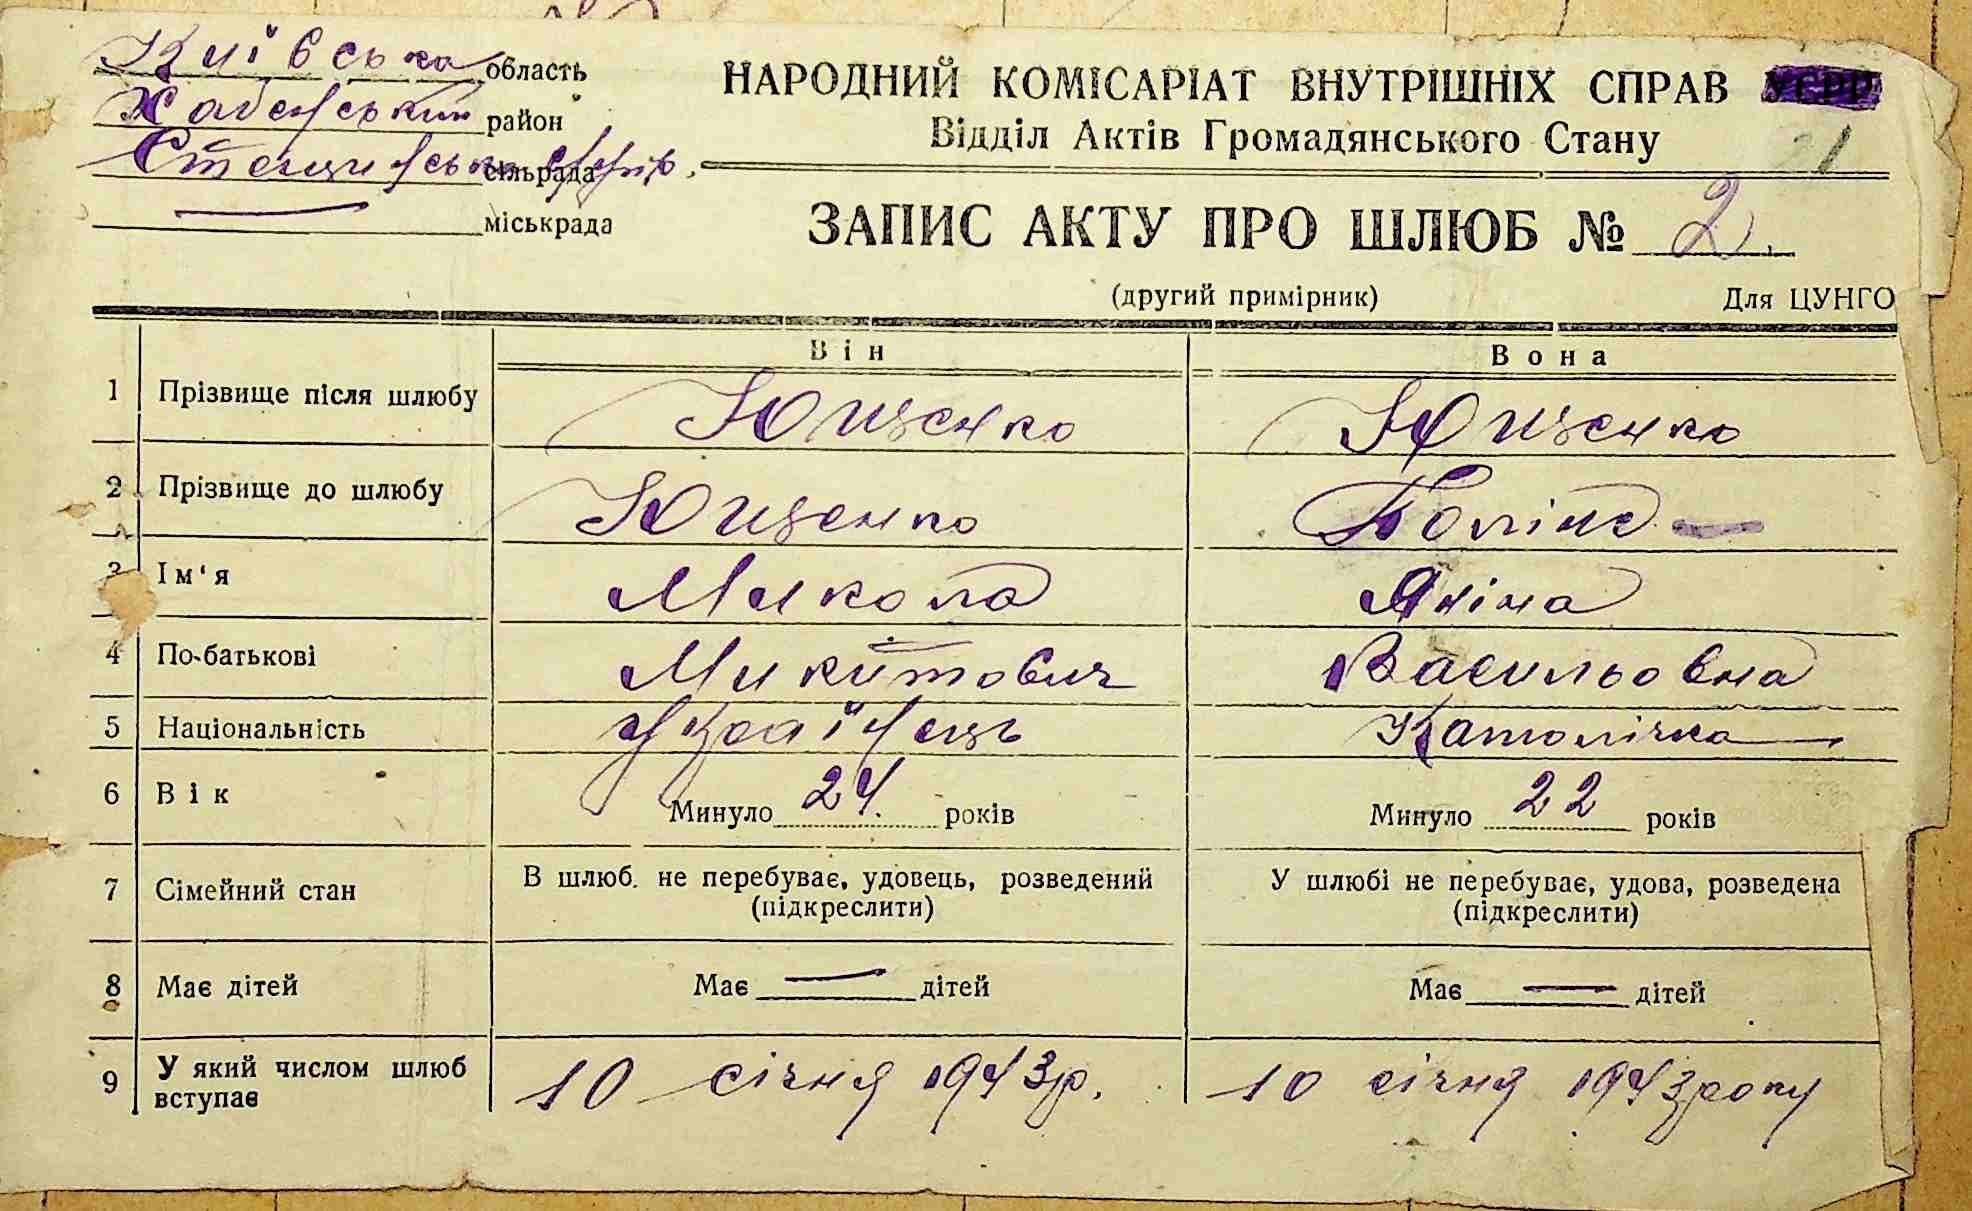 Київська область
Хабенський район
сільрада
міськрада
НАРОДНИЙ КОМІСАРІАТ ВНУТРІШНІХ СПРАВ УСРР
Відділ Актів Громадянського Стану
21
ЗАПИС АКТУ ПРО ШЛЮБ № 2.
(другий примірник) Для ЦУНГО
Він Вона
1 Прізвище після шлюбу Ющенко Ющенко
2 Прізвище до шлюбу Ющенко
3 Ім'я Микола Яніна
4 По-батькові Микитович Васильовна
5 Національність Українець Католічка
6 Вік Минуло 24. років Минуло 22 років
7 Сімейний стан В шлюб. не перебуває, удовець, розведений У шлюбі не перебуває, удова, розведена
(підкреслити) (підкреслити)
8 Має дітей Має — дітей Має — дітей
9 У який числом шлюб вступає 10 січня 1943 р. 10 січня 1943 року